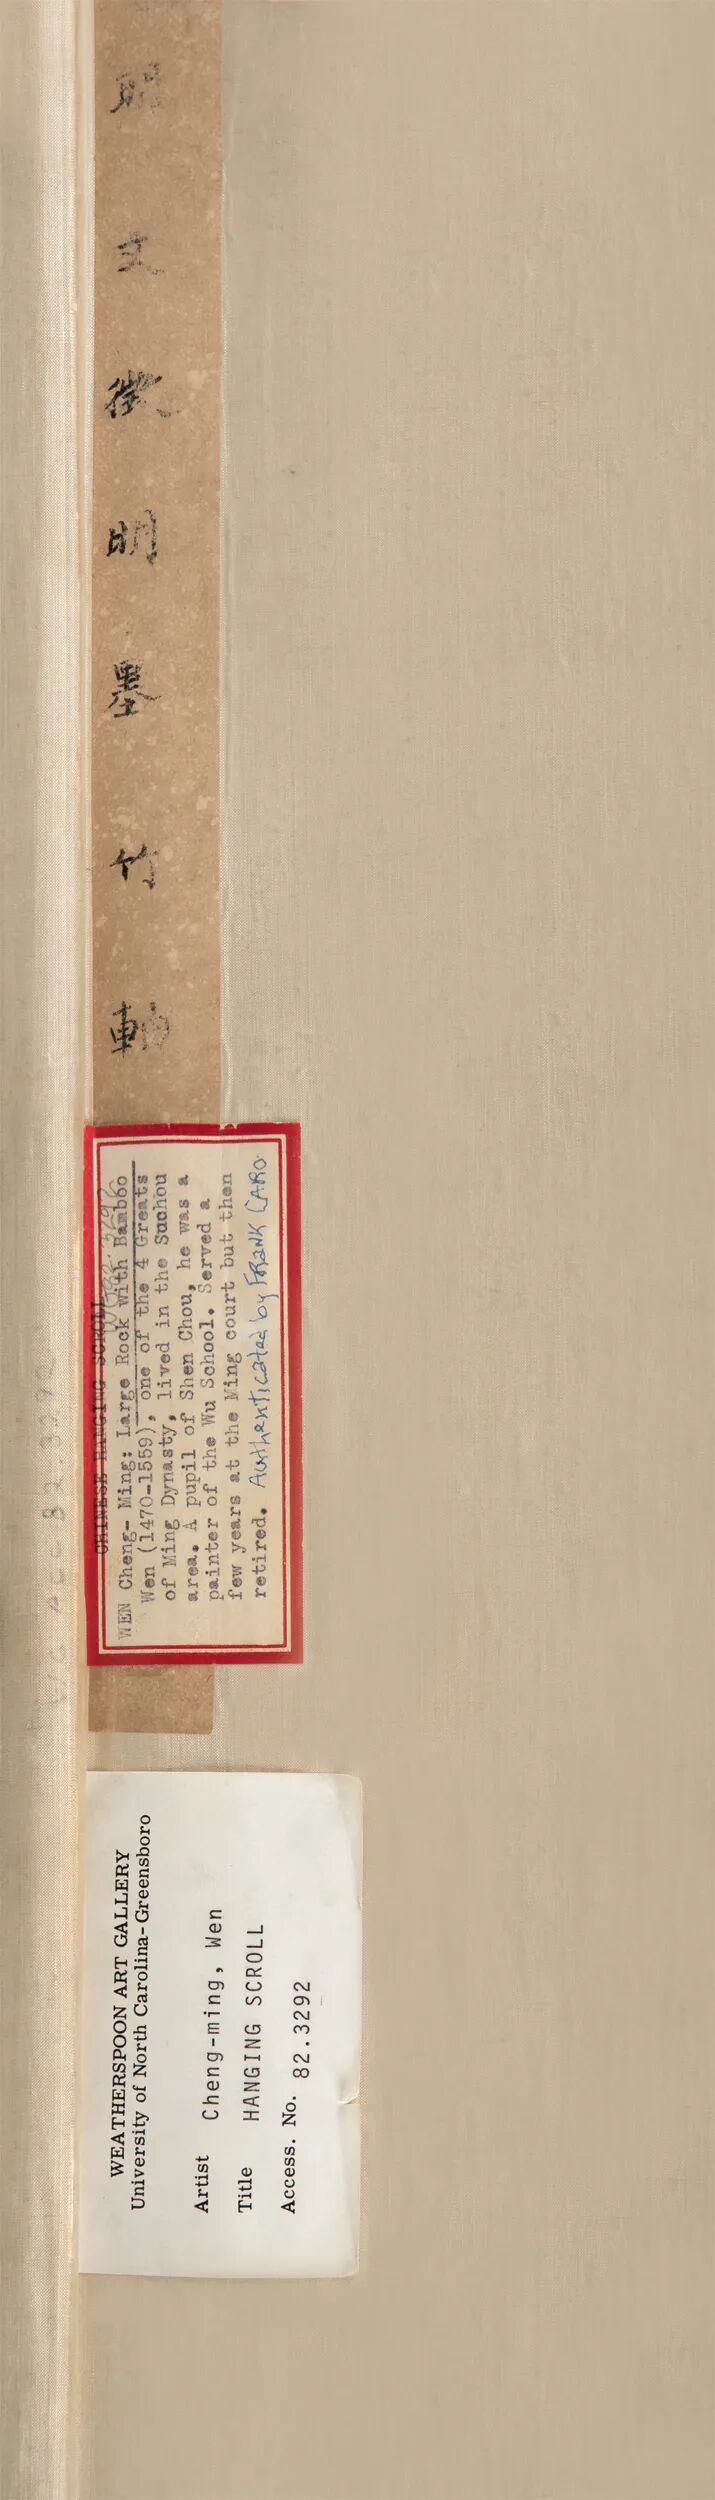 明文徵明墨竹軸
CHINESE HANGING SCROLL
WEN Cheng- Ming: Large Rock with Bamboo
Wen (1470-1559), one of the 4 Greats
of Ming Dynasty, lived in the Suchou
area. A pupil of Shen Chou, he was a
painter of the Wu School. Served a
few years at the Ming court but then
retired. Authenticated by FRANK CARO.
WEATHERSPOON ART GALLERY
University of North Carolina-Greensboro
Artist Cheng-ming, Wen
Title HANGING SCROLL
Access. No. 82.3292